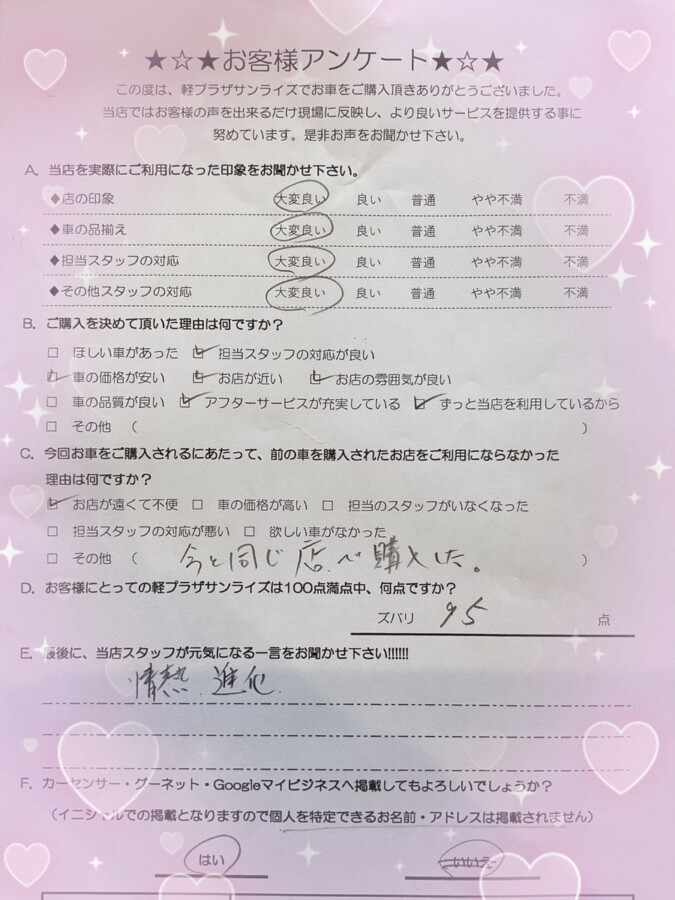 ★☆★お客様アンケート★☆★
この度は、軽プラザサンライズでお車をご購入頂きありがとうございました。
当店ではお客様の声を出来るだけ現場に反映し、より良いサービスを提供する事に
努めています。是非お声をお聞かせ下さい。
A. 当店を実際にご利用になった印象をお聞かせ下さい。
◆店の印象 大変良い 良い 普通 やや不満 不満
◆車の品揃え 大変良い 良い 普通 やや不満 不満
◆担当スタッフの対応 大変良い 良い 普通 やや不満 不満
◆その他スタッフの対応 大変良い 良い 普通 やや不満 不満
B. ご購入を決めて頂いた理由は何ですか？
□ ほしい車があった ☑ 担当スタッフの対応が良い
☑ 車の価格が安い ☑ お店が近い ☑ お店の雰囲気が良い
□ 車の品質が良い ☑ アフターサービスが充実している ☑ ずっと当店を利用しているから
□ その他 （ ）
C. 今回お車をご購入されるにあたって、前の車を購入されたお店をご利用にならなかった
理由は何ですか？
☑ お店が遠くて不便 □ 車の価格が高い □ 担当のスタッフがいなくなった
□ 担当スタッフの対応が悪い □ 欲しい車がなかった
□ その他 （ 今と同じ店で購入した。 ）
D. お客様にとっての軽プラザサンライズは100点満点中、何点ですか？
ズバリ 95 点
E. 最後に、当店スタッフが元気になる一言をお聞かせ下さい!!!!!!
情熱 進化
F. カーセンサー・グーネット・Googleマイビジネスへ掲載してもよろしいでしょうか？
（イニシャルでの掲載となりますので個人を特定できるお名前・アドレスは掲載されません）
はい いいえ